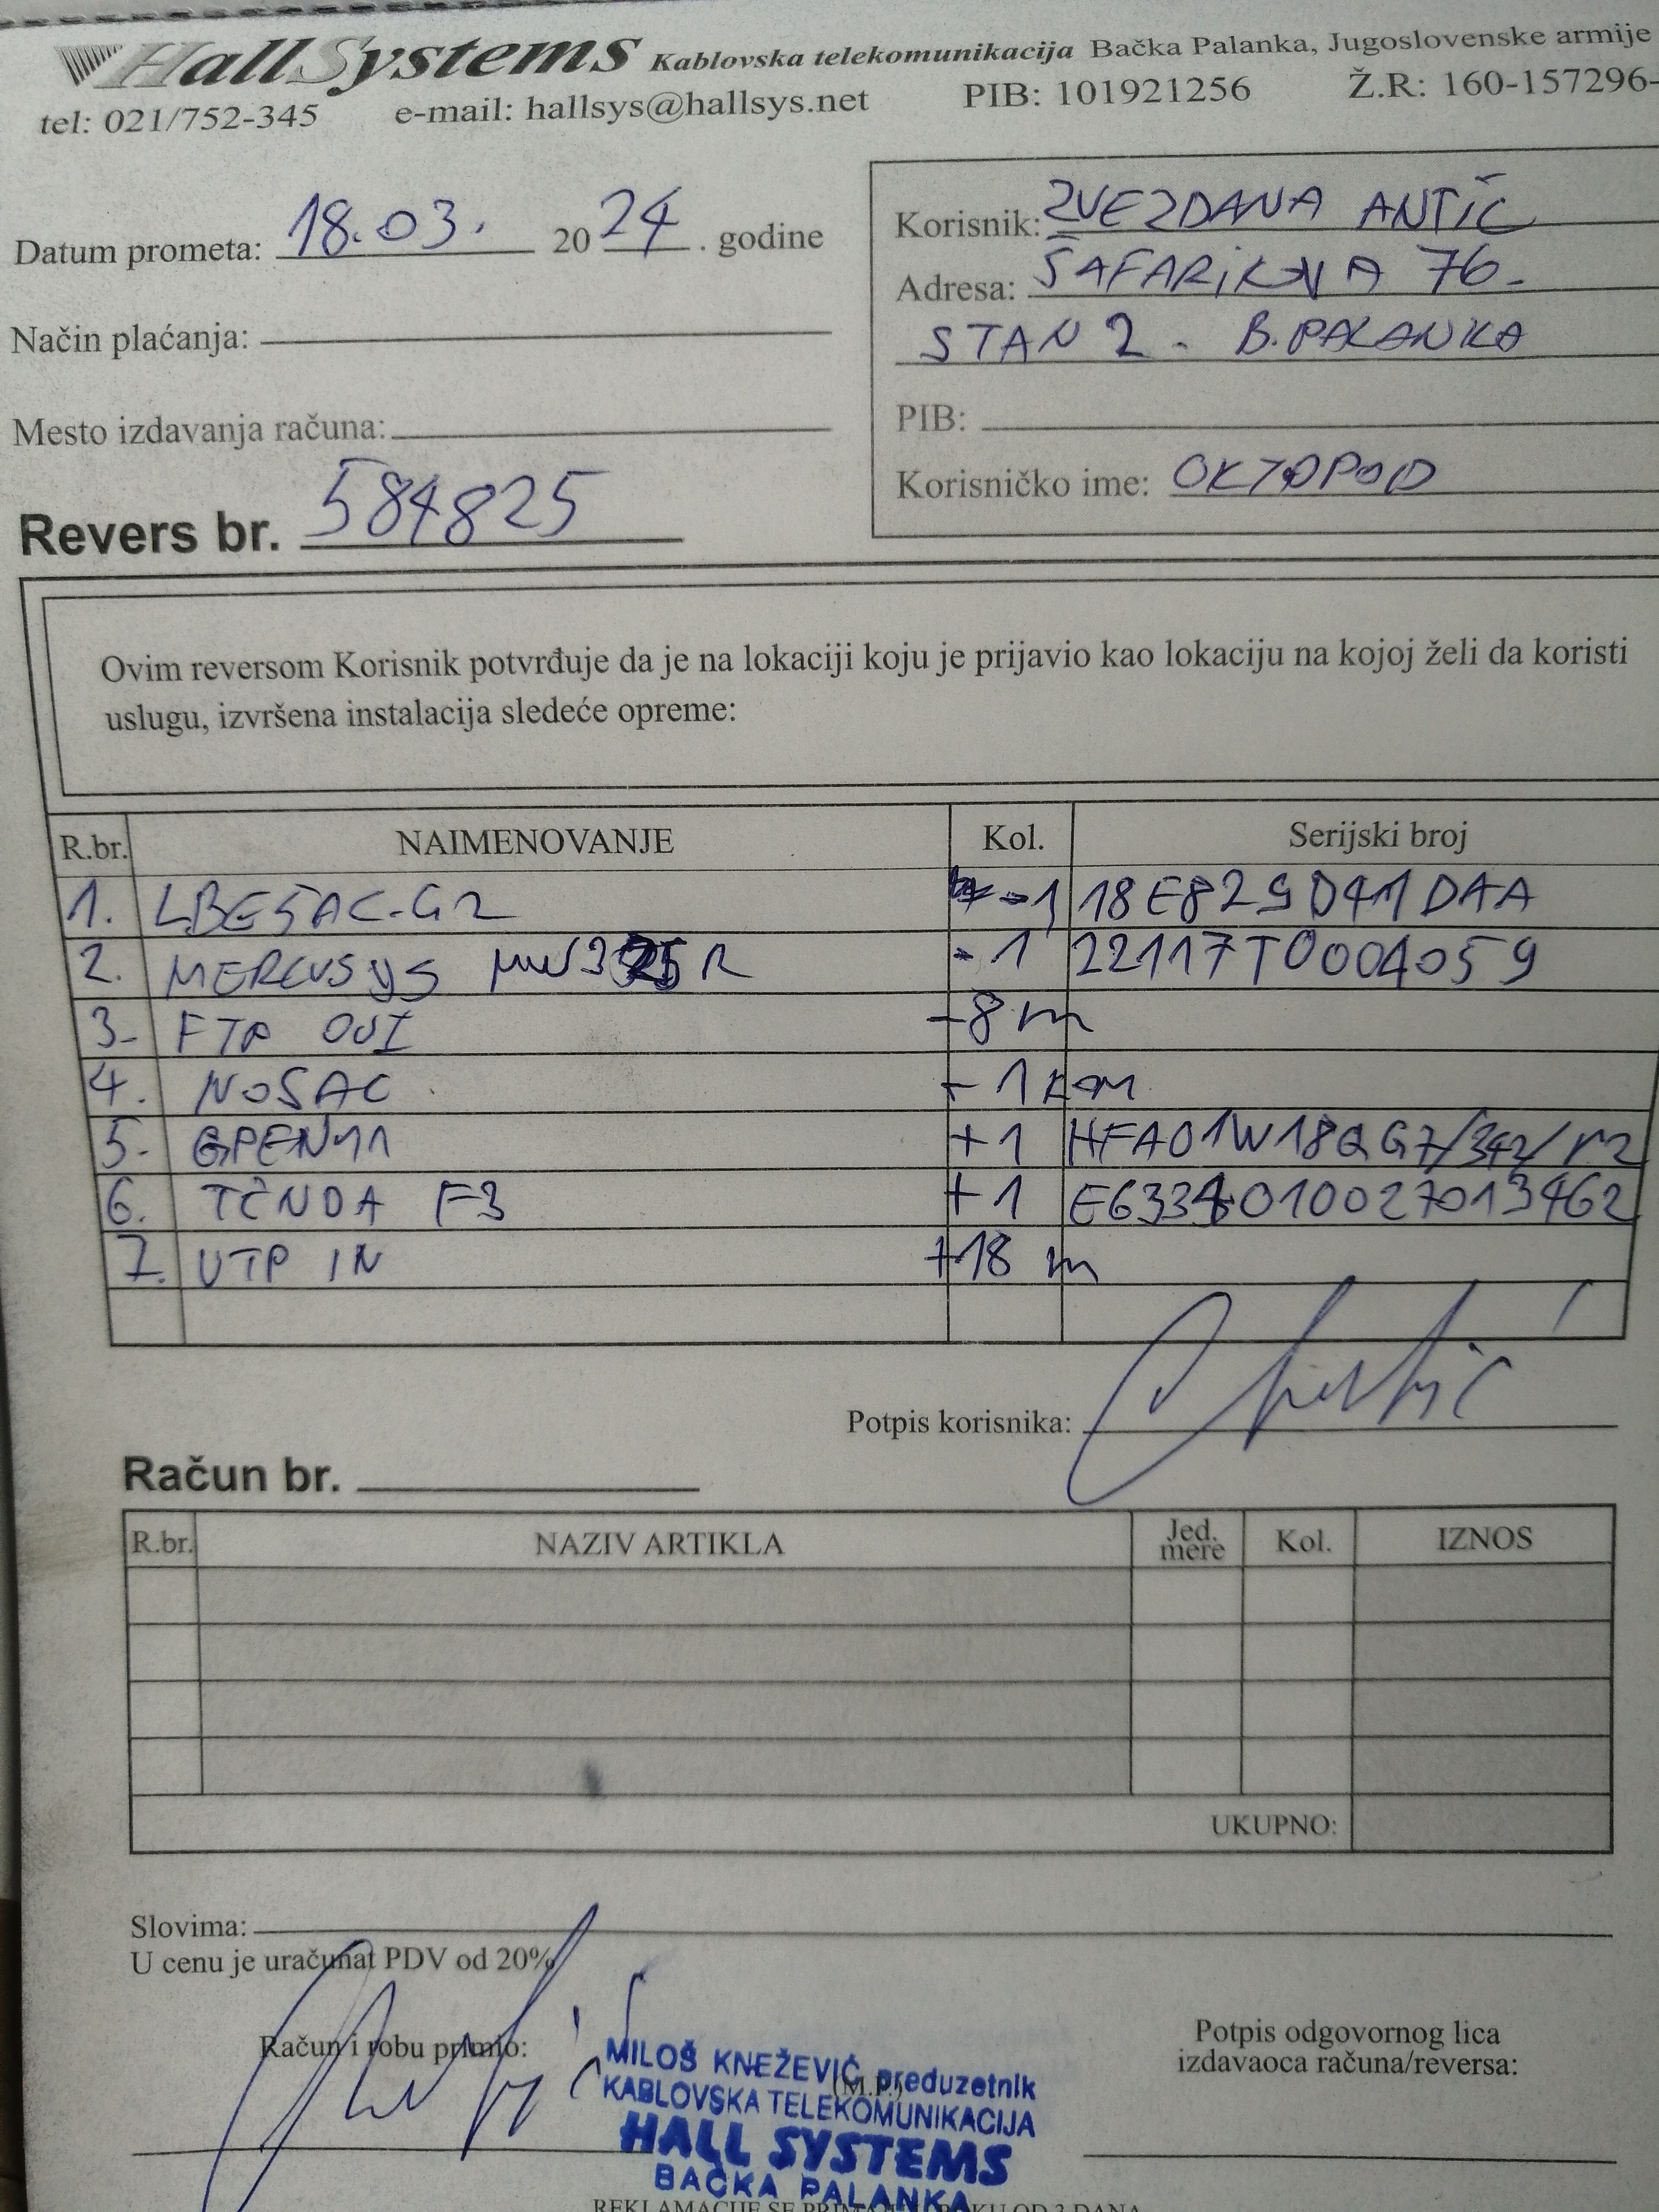 HallSystems Kablovska telekomunikacija Bačka Palanka, Jugoslovenske armije
tel: 021/752-345 e-mail: hallsys@hallsys.net PIB: 101921256 Ž.R: 160-157296-
Datum prometa: 18.03. 2024. godine
Korisnik: ZVEZDANA ANTIĆ
Adresa: ŠAFARIKOVA 76.
STAN 2. B. PALANKA
Način plaćanja:
Mesto izdavanja računa:
PIB:
Korisničko ime: OKTOPOD
Revers br. 584825
Ovim reversom Korisnik potvrđuje da je na lokaciji koju je prijavio kao lokaciju na kojoj želi da koristi
uslugu, izvršena instalacija sledeće opreme:
R.br. NAIMENOVANJE Kol. Serijski broj
1. LBE5AC-G2 -1 18E829D41DAA
2. MERCUSYS MW325R -1 22117T0004059
3- FTP OUT -8m
4. NOSAC - 1 KOM
5- GPEN11 +1 HFA01W18QG7/342/r2
6. TENDA F3 +1 E6334010027013462
7. UTP IN +18 m
Potpis korisnika:
Račun br.
R.br. NAZIV ARTIKLA Jed. mere Kol. IZNOS
UKUPNO:
Slovima:
U cenu je uračunat PDV od 20%
Račun i robu primio:
(M.P.)
Potpis odgovornog lica
izdavaoca računa/reversa:
MILOŠ KNEŽEVIĆ preduzetnik
KABLOVSKA TELEKOMUNIKACIJA
HALL SYSTEMS
BAČKA PALANKA
REKLAMACIJE SE PRIMAJU U ROKU OD 3 DANA